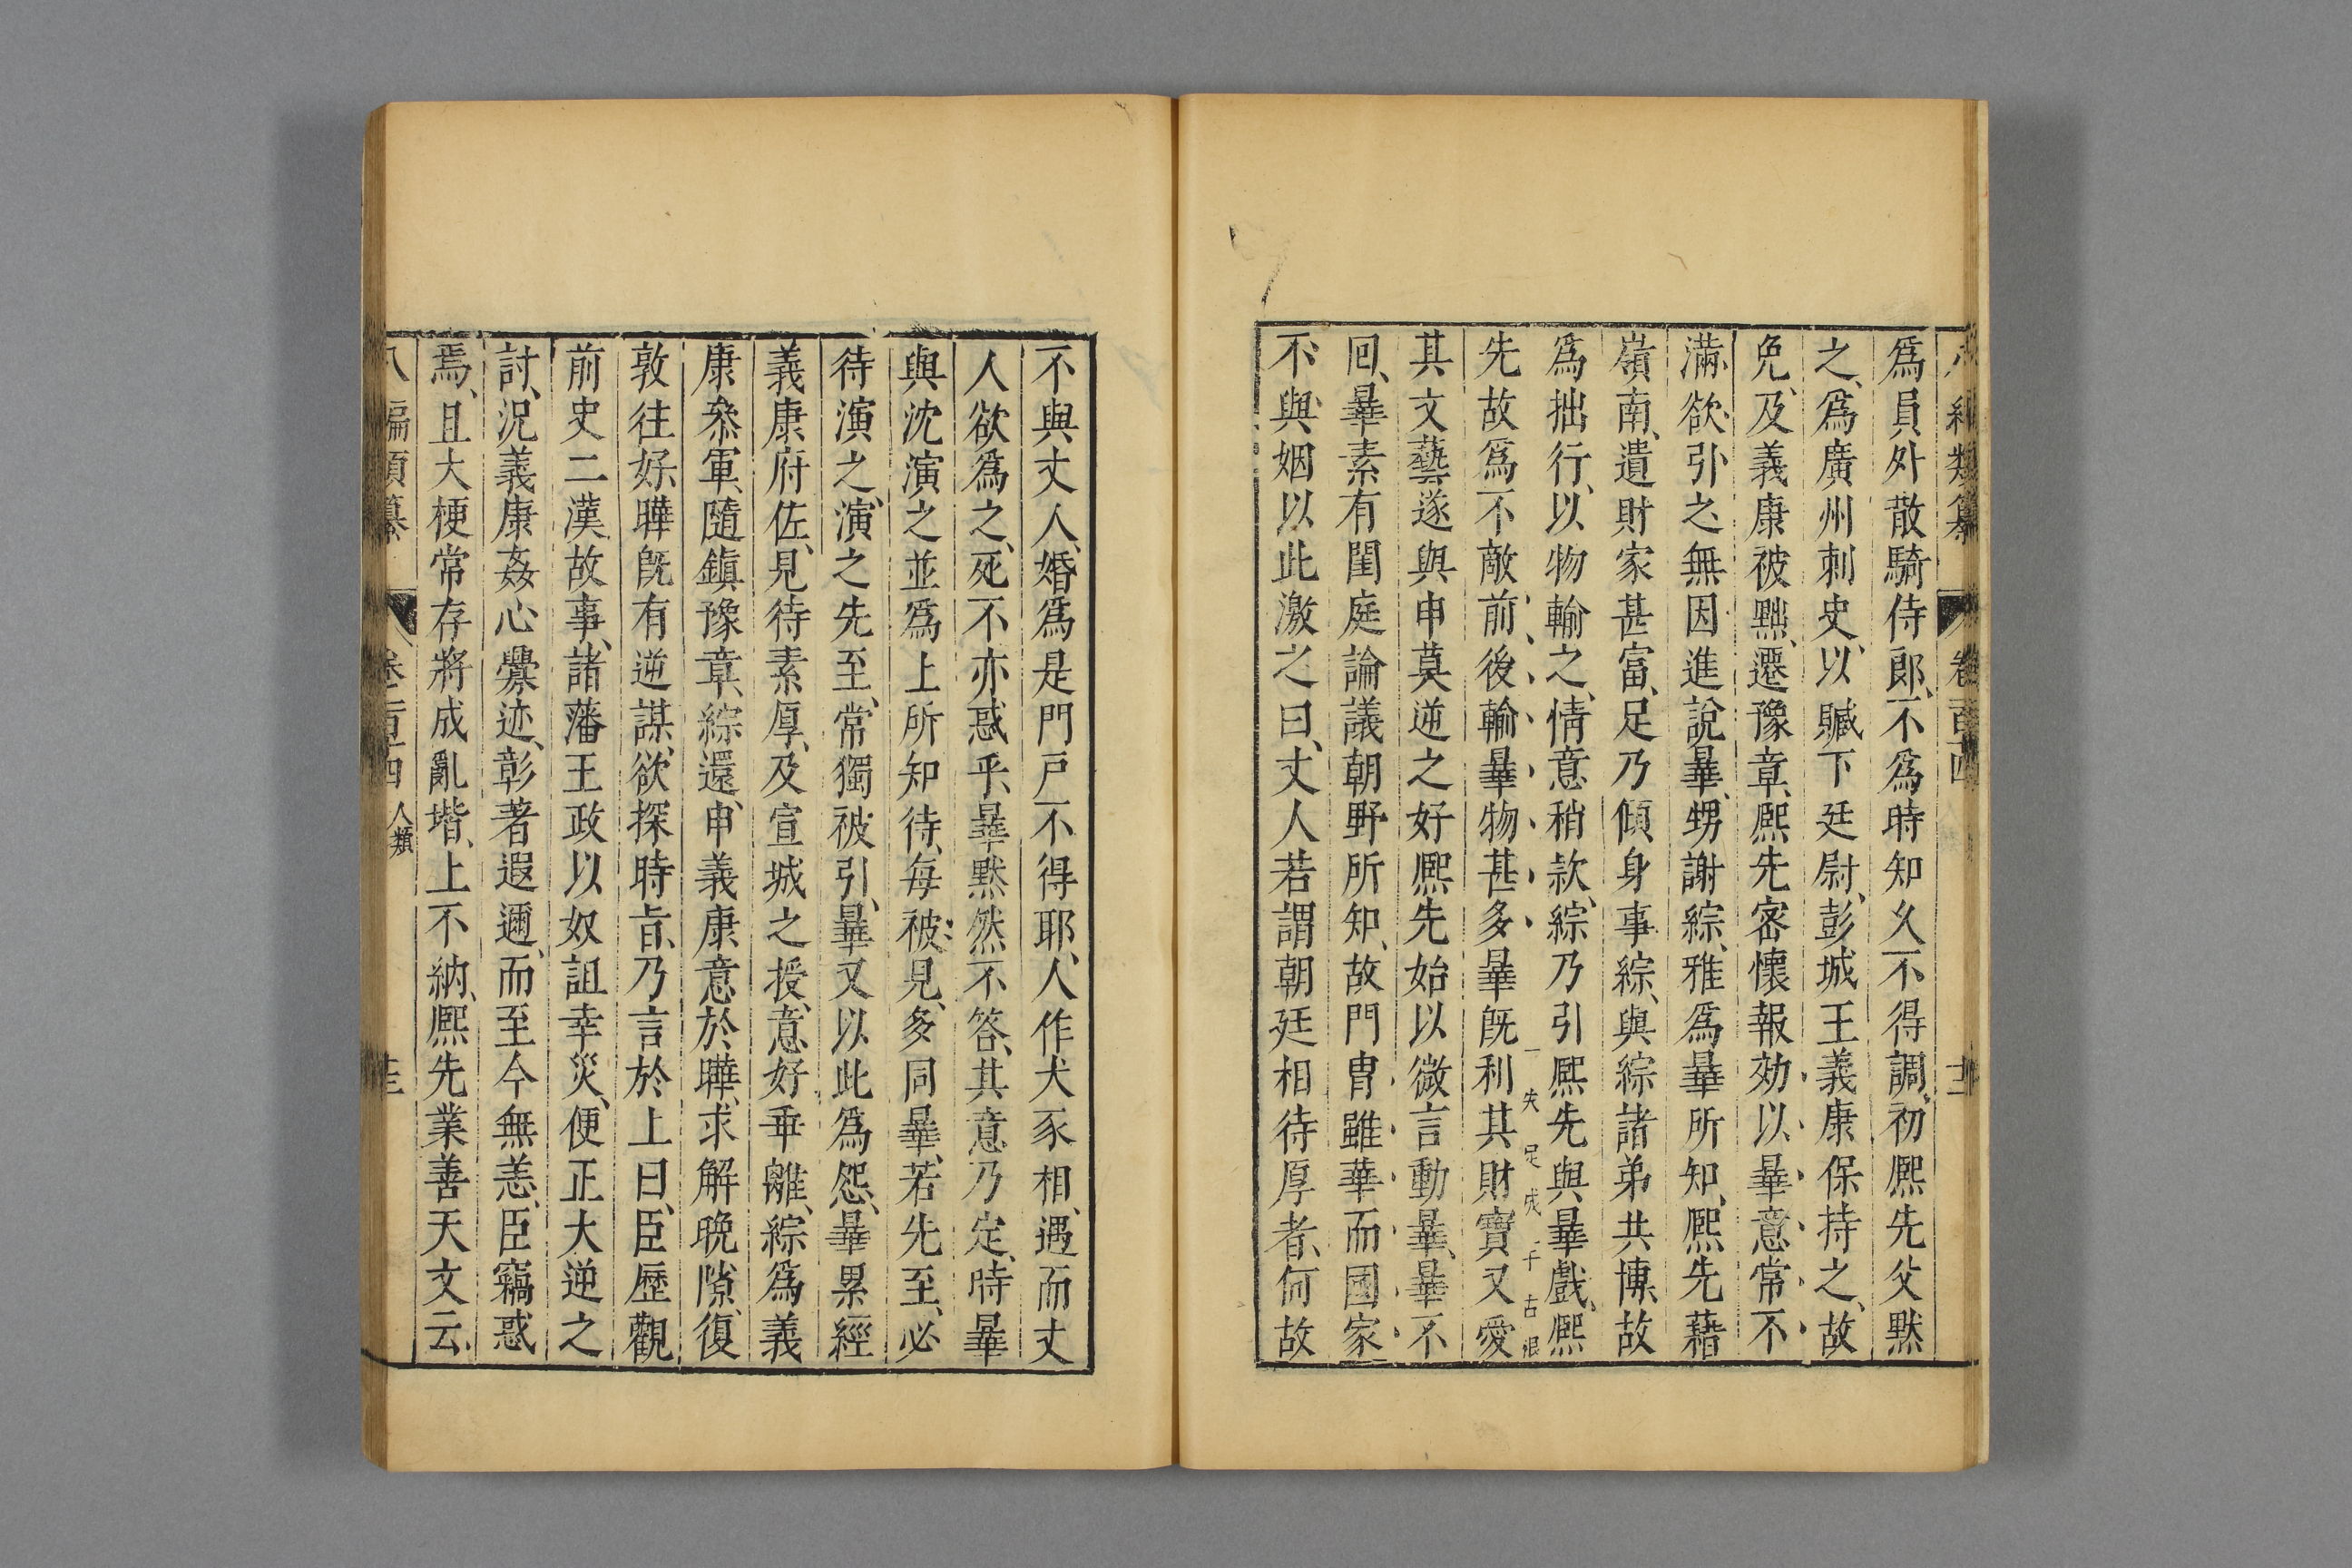 八編類纂　卷百十四　十二
爲員外散騎侍郎、不爲時知久不得調、初熈先父黙
之、爲廣州刺史、以贓下廷尉、彭城王義康保持之、故
免、及義康被黜、遷豫章、熈先密懷報効以曅意常不
滿、欲引之無因進說、曅甥謝綜、雅爲曅所知、熈先藉
嶺南、遺財家甚富、足乃傾身事綜、與綜諸弟共博、故
爲拙行、以物輸之、情意稍款、綜乃引熈先與曅戲、熈
一失足成千古恨
先故爲不敵前後輸曅物甚多曅旣利其財寶又愛
其文藝遂與申莫逆之好熈先始以微言動曅、曅不
囘、曅素有閨庭論議朝野所知、故門冑雖華而國家
不與姻以此激之曰、丈人若謂朝廷相待厚者、何故
不與丈人婚爲是門戸不得耶、人作犬豕相遇而丈
人欲爲之、死不亦惑乎、曅黙然不答、其意乃定、時曅
與沈演之並爲上所知待、每被見、多同曅、若先至、必
待演之、演之先至、常獨被引、曅又以此爲怨、曅累經
義康府佐、見待素厚、及宣城之授、意好乖離、綜爲義
康叅軍、隨鎭豫章、綜還、申義康意於曄、求解晩隙、復
敦往好、曄旣有逆謀、欲探時旨、乃言於上曰、臣歷觀
前史二漢故事、諸藩王政以奴詛幸災、便正大逆之
討、況義康姦心釁迹、彰著遐邇、而至今無恙、臣竊惑
焉、且大梗常存將成亂堦、上不納、熈先業善天文云、
八編類纂　卷百十四　人類